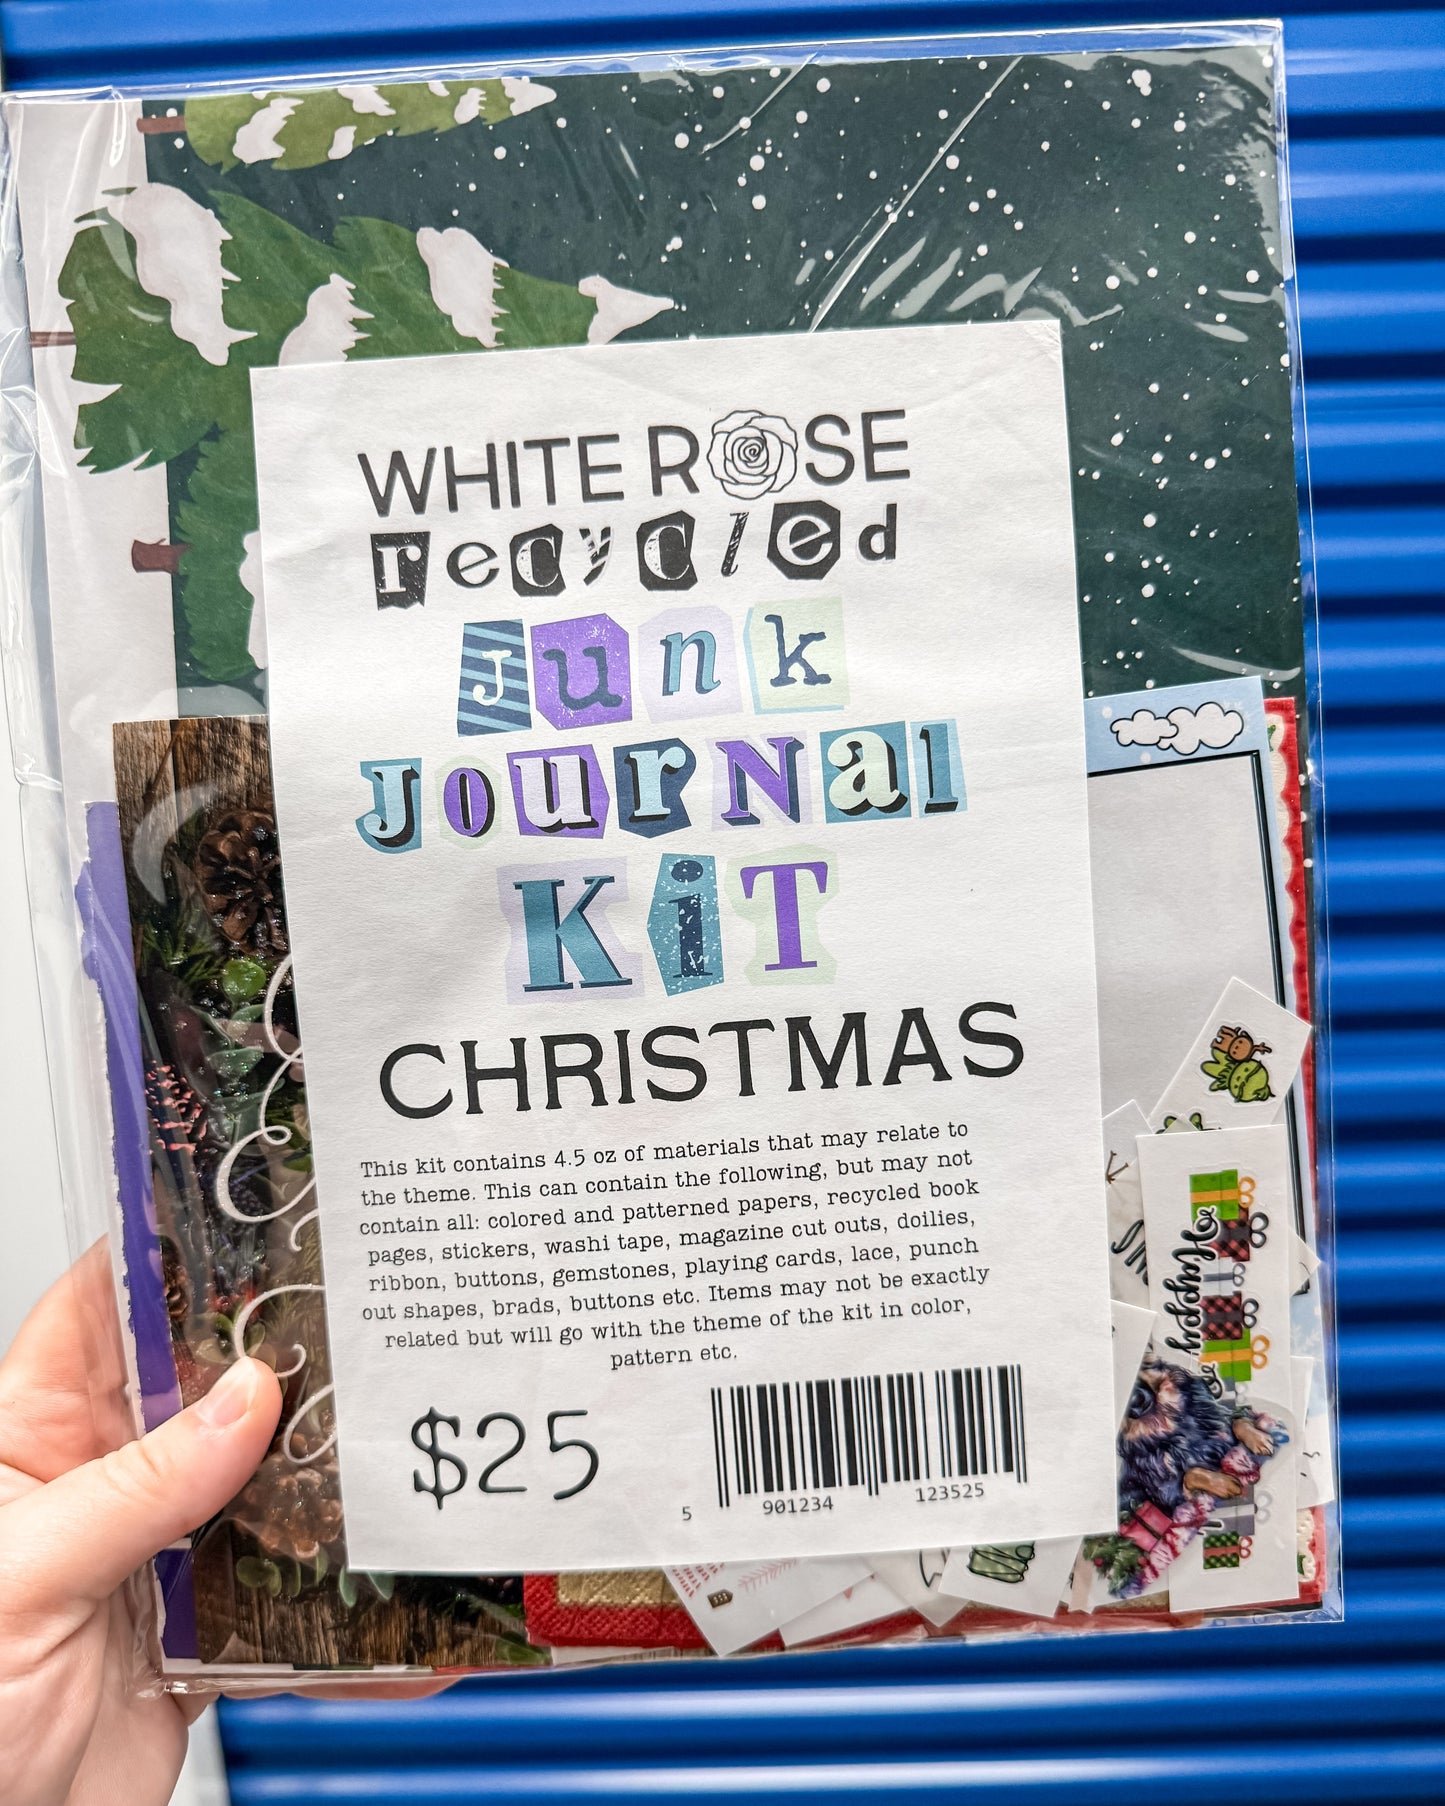 WHITE ROSE
recycled
Junk
JOURNal
KiT
CHRISTMAS
This kit contains 4.5 oz of materials that may relate to
the theme. This can contain the following, but may not
contain all: colored and patterned papers, recycled book
pages, stickers, washi tape, magazine cut outs, doilies,
ribbon, buttons, gemstones, playing cards, lace, punch
out shapes, brads, buttons etc. Items may not be exactly
related but will go with the theme of the kit in color,
pattern etc.
$25
5 901234 123525